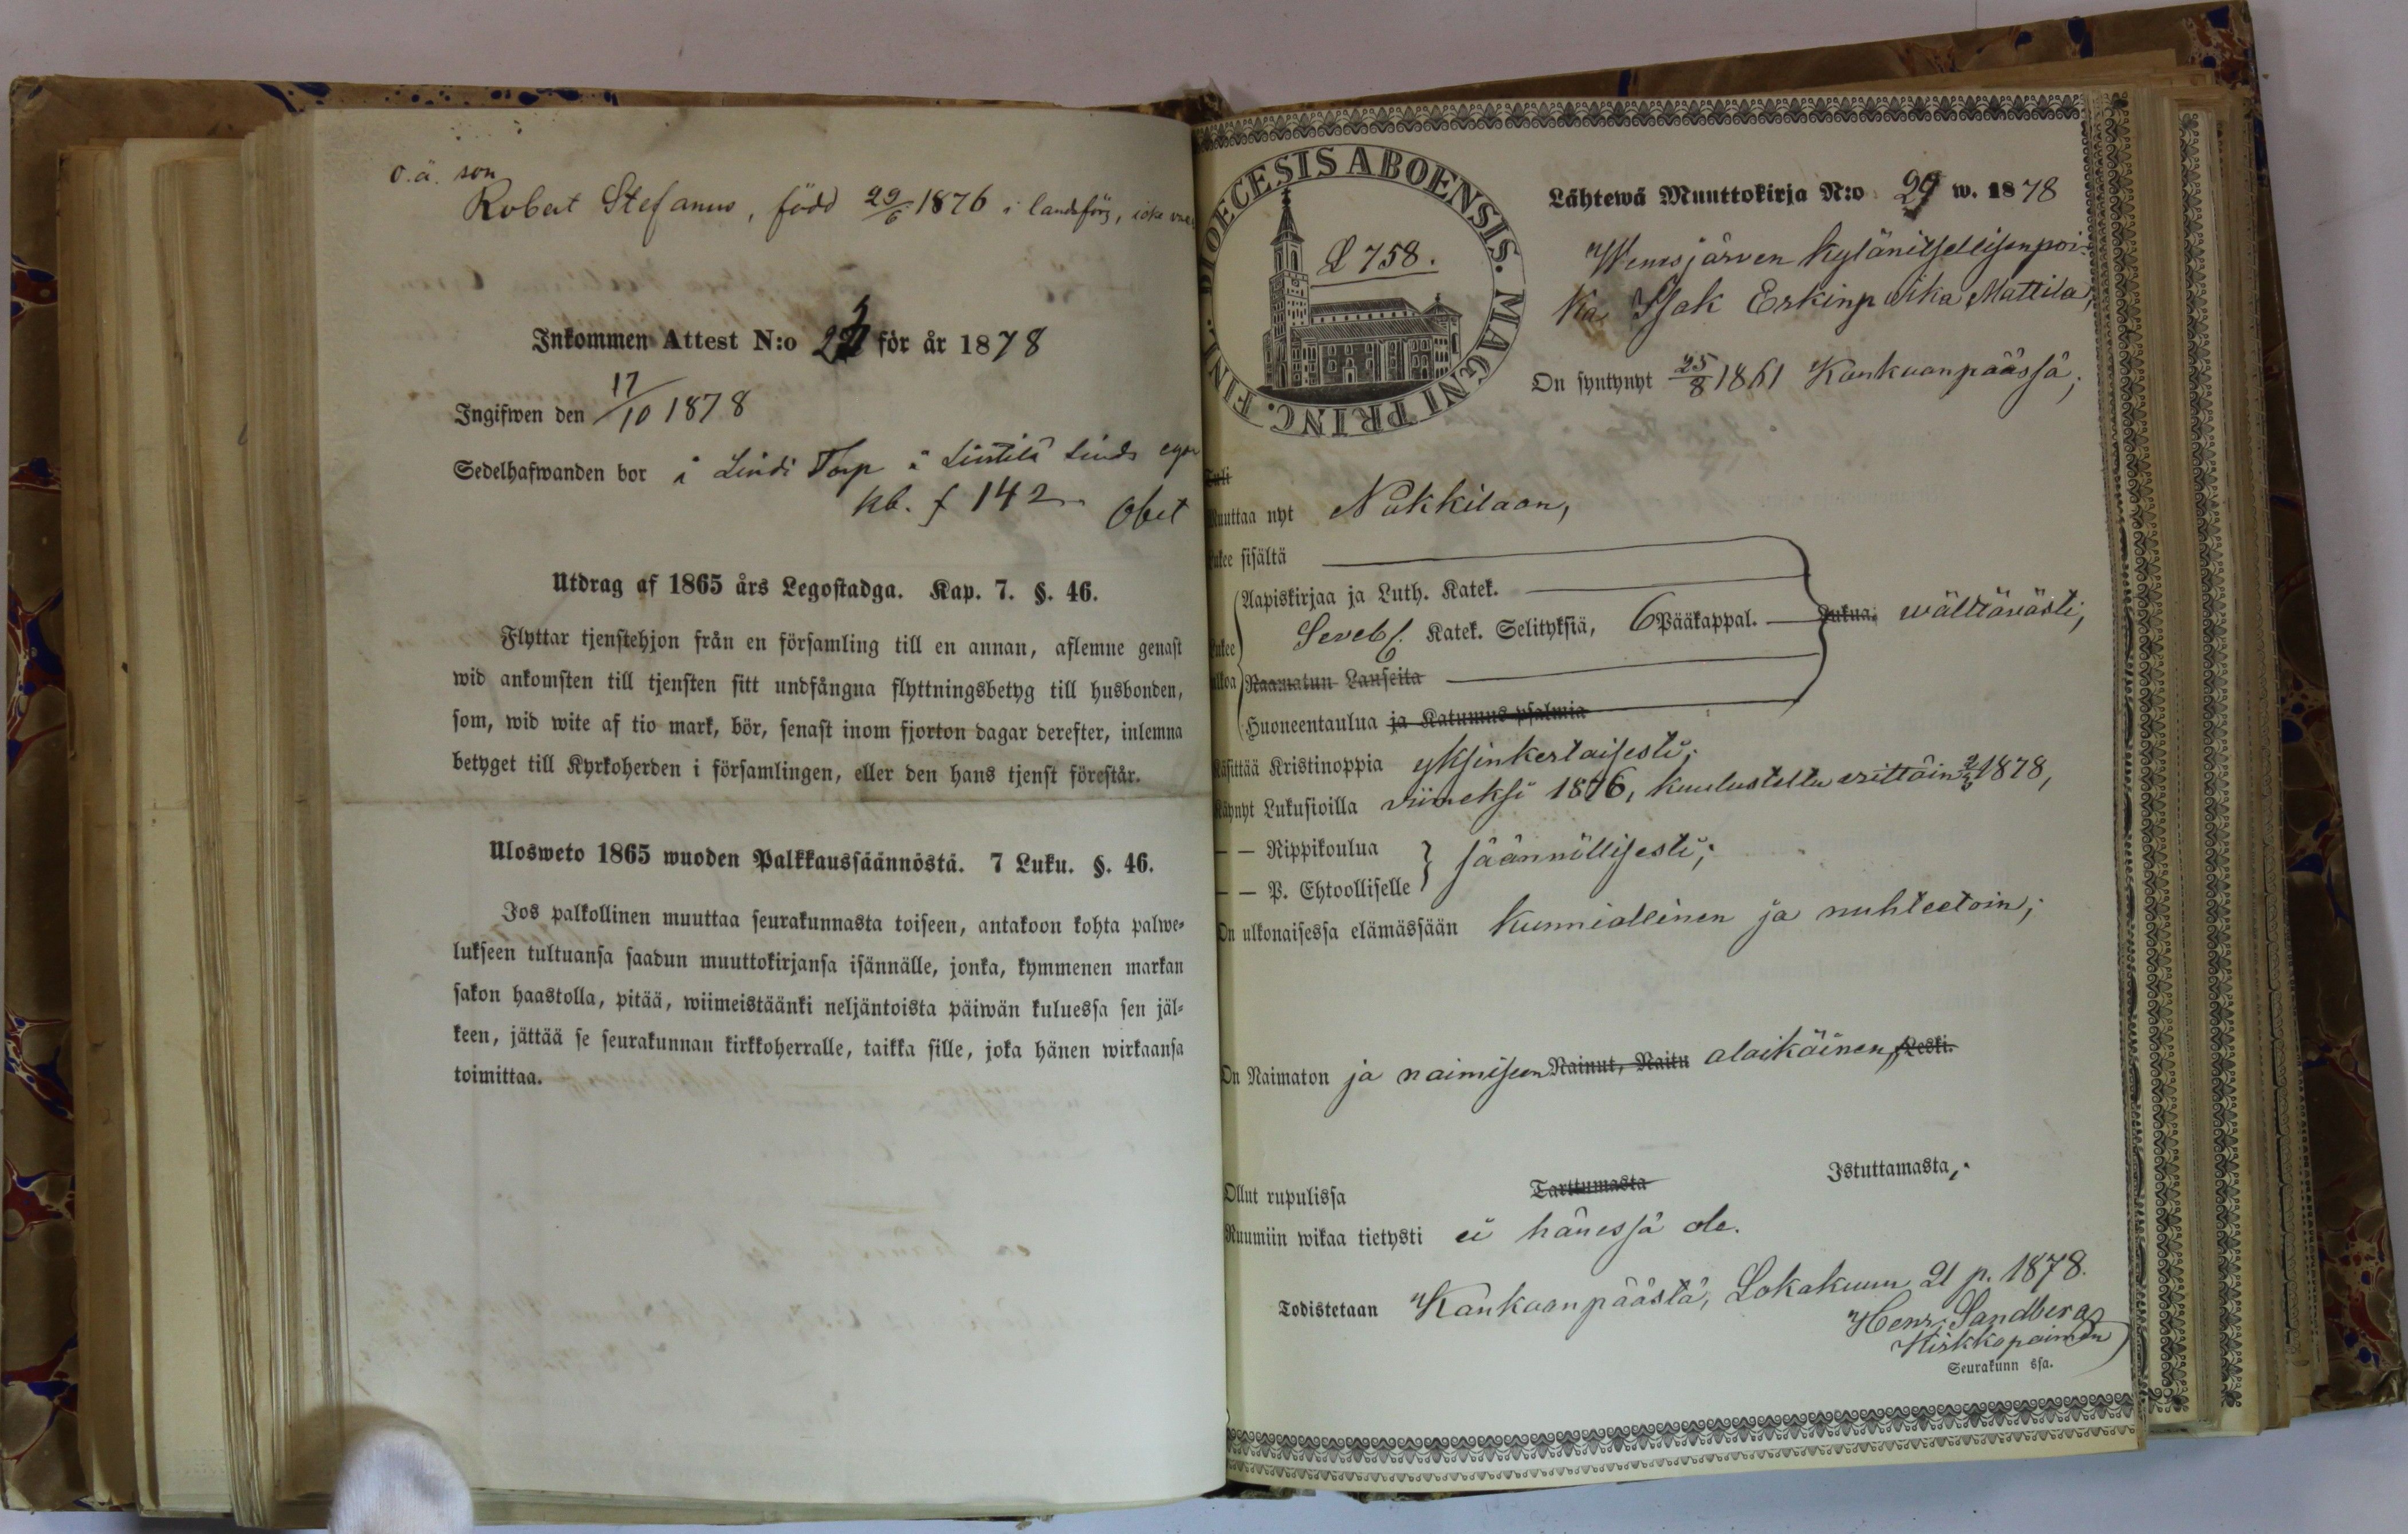 o.ä. son
Robert Stefanus, född 29/6 1876 i landsförs, icke
Inkommen Attest N:o för år 1878
Ingifwen den 17/10 1878
Sedelhafwanden bor i Lindi Torp
kb. f 142
Utdrag af 1865 års Legostadga. Kap. 7. §. 46.
Flyttar tjenstehjon från en församling till en annan, aflemne genast
wid ankomsten till tjensten sitt undfångna flyttningsbetyg till husbonden,
som, wid wite af tio mark, bör, senast inom fjorton dagar derefter, inlemna
betyget till Kyrkoherden i församlingen, eller den hans tjenst förestår.
Ulosweto 1865 wuoden Palkkaussäännöstä. 7 Luku. §. 46.
Jos palkollinen muuttaa seurakunnasta toiseen, antakoon kohta palwe=
lukseen tultuansa saadun muuttokirjansa isännälle, jonka, kymmenen markan
sakon haastolla, pitää, wiimeistäänki neljäntoista päiwän kuluessa sen jäl=
keen, jättää se seurakunnan kirkkoherralle, taikka sille, joka hänen wirkaansa
toimittaa.
DIOECESIS ABOENSIS. MAGNI PRINC. FINL.
758.
Lähtewä Muuttokirja N:o w. 1878
kylänitsellisenpoi-
ka Isak Erkinp Mattila,
On syntynyt 25/8 1861 Kankaanpäässä;
Tuli
Muuttaa nyt Nakkilaan,
Lukee sisältä
Aapiskirjaa ja Luth. Katek.
Lukee Sveb. Katek. Selityksiä, 6 Pääkappal. Lukua. wälttäwästi;
ulkoa Raamatun Lauseita
Huoneentaulua ja Katumus psalmia
Käsittää Kristinoppia yksinkertaisesti;
Käynyt Lukusioilla viimeksi 1876, kuulusteltu erittäin 1878,
— — Rippikoulua
säännöllisesti;
— — P. Ehtoolliselle
On ulkonaisessa elämässään kunniallinen ja nuhteetoin;
On Naimaton ja naimiseen Nainut, Naitu alaikäinen, Leski.
Ollut rupulissa Tarttumasta Istuttamasta;
Ruumiin wikaa tietysti ei hänessä ole.
Todistetaan Kankaanpäästä, Lokakuun 21 p. 1878.
Henr. Sandberg
Kirkkopaimen
Seurakunn ssa.